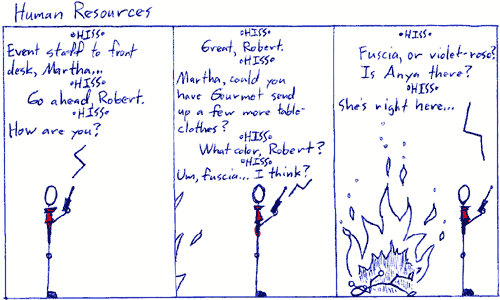 Human Resources
∘HISS∘
Event staff to front
desk, Martha...
∘HISS∘
Go ahead, Robert.
∘HISS∘
How are you?
∘HISS∘
Great, Robert.
∘HISS∘
Martha, could you
have Gourmet send
up a few more table-
clothes?
∘HISS∘
What color, Robert?
∘HISS∘
Um, fuscia... I think?
∘HISS∘
Fuscia, or violet-rose?
Is Anya there?
∘HISS∘
She's right here...